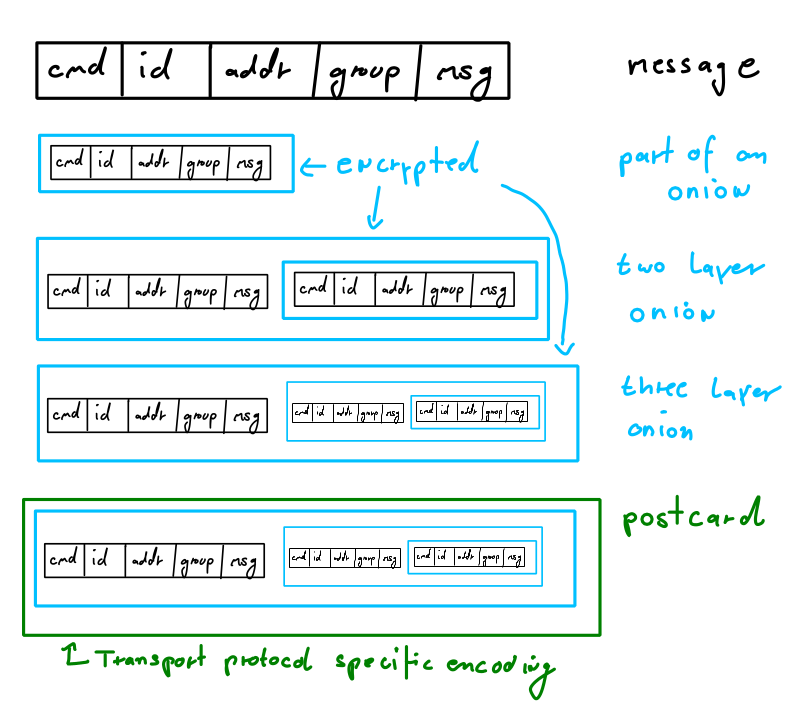 cmd id addr group msg message
cmd id addr group msg ← encrypted part of an
onion
cmd id addr group msg cmd id addr group msg two layer
onion
cmd id addr group msg cmd id addr group msg cmd id addr group msg three layer
onion
postcard
cmd id addr group msg cmd id addr group msg cmd id addr group msg
Transport protocol specific encoding